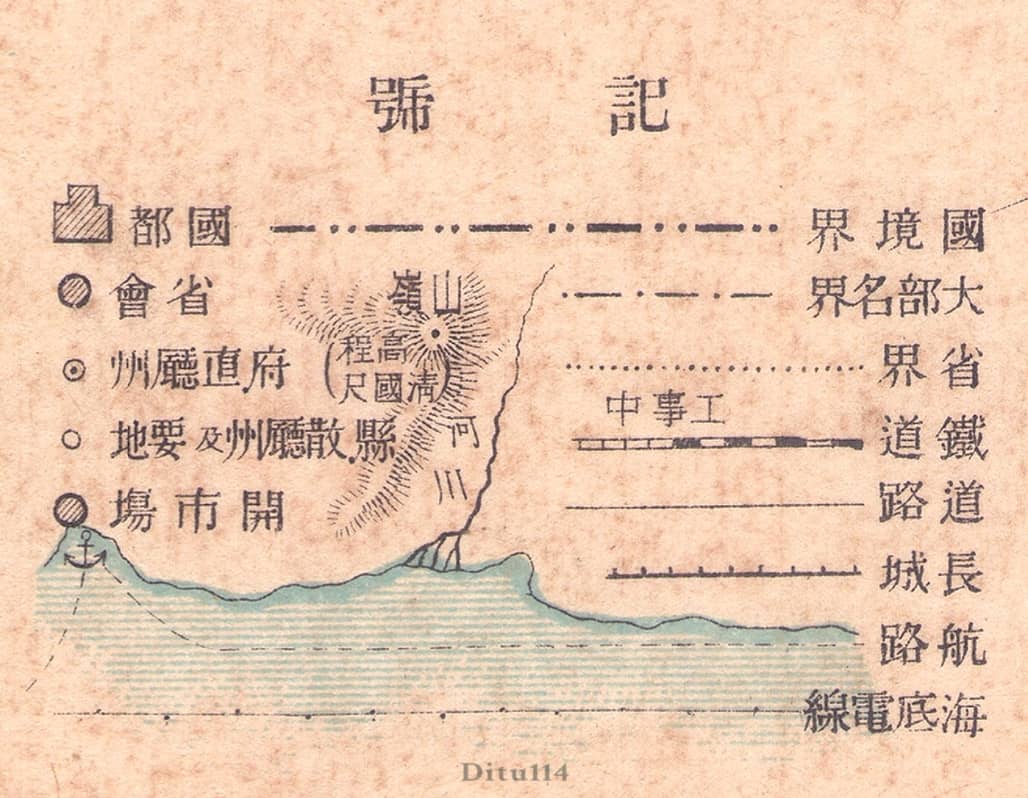 記號
國境界
大部名界
省界
工事中
鐵道
道路
長城
航路
海底電線
國都
省會
府直廳州
縣散廳州及要地
開市塲
山嶺
(高程
清國尺)
河川
Ditu114